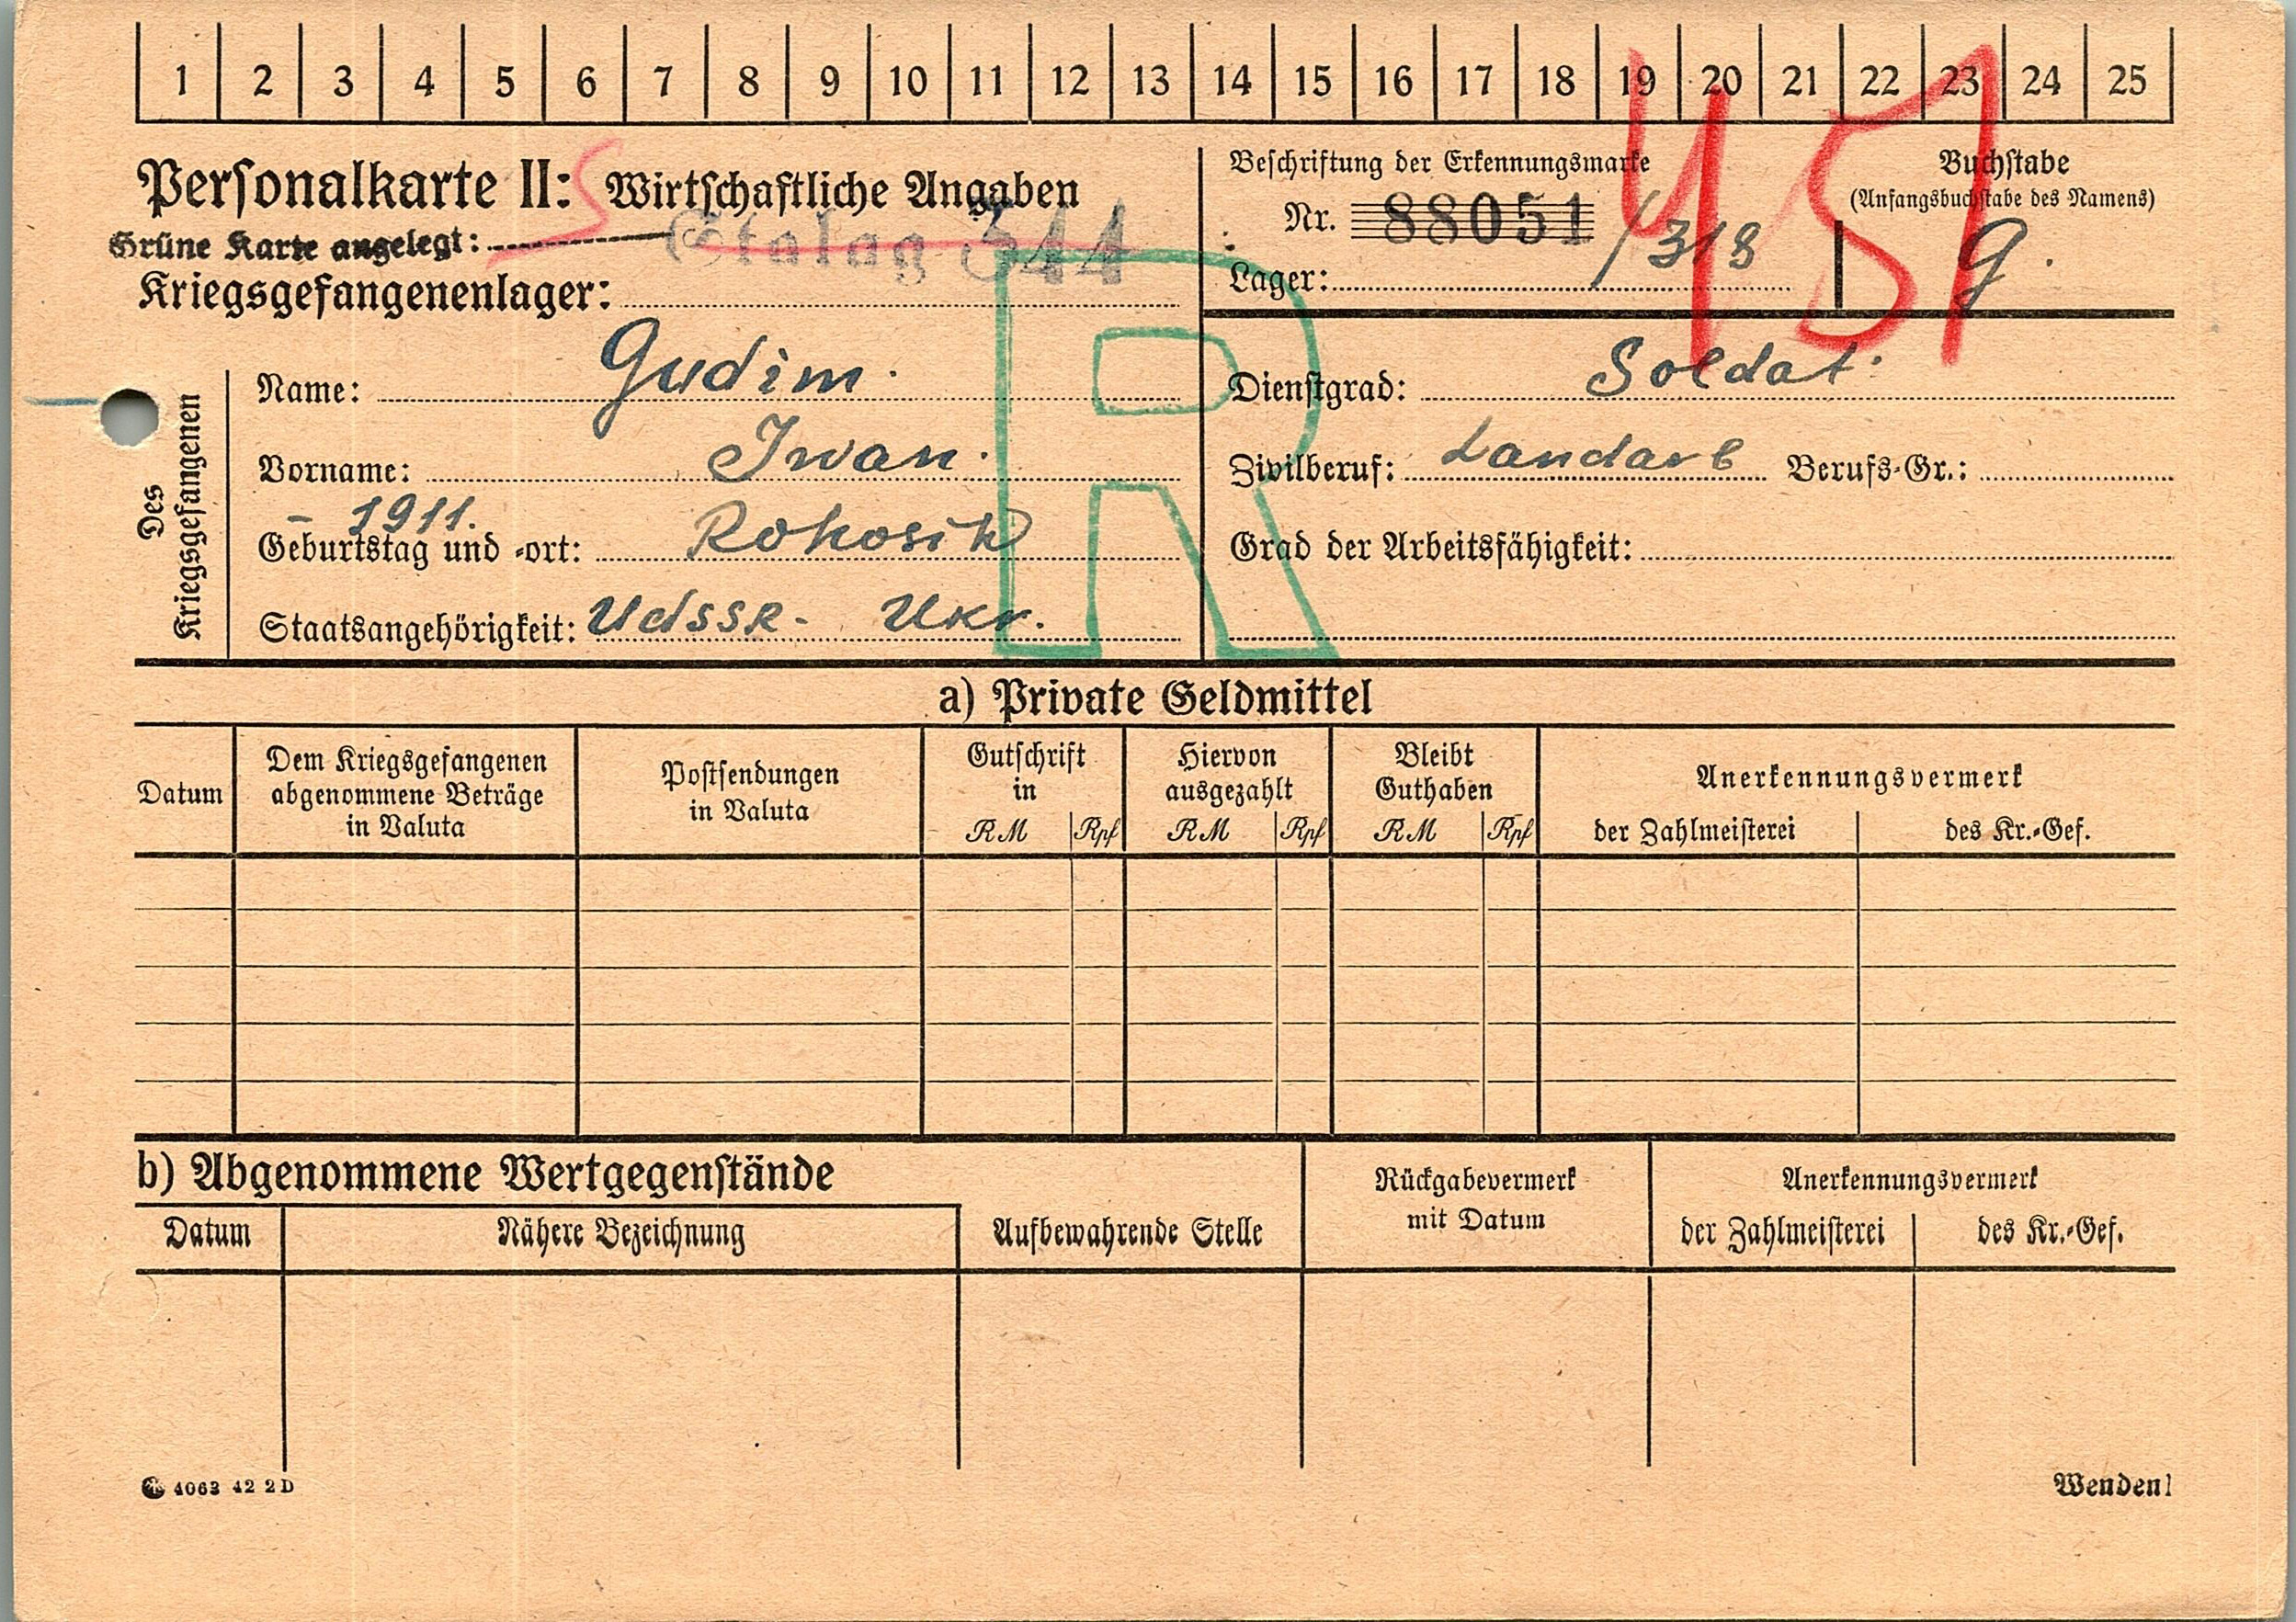 1 2 3 4 5 6 7 8 9 10 11 12 13 14 15 16 17 18 19 20 21 22 23 24 25
451
Personalkarte II: Wirtschaftliche Angaben
Grüne Karte angelegt:
Stalag 344
Kriegsgefangenenlager:
Beschriftung der Erkennungsmarke
Nr. 88051
/318
Lager:
Buchstabe
(Anfangsbuchstabe des Namens)
G.
R
Des Kriegsgefangenen
Name: Gudim.
Vorname: Iwan.
- 1911.
Geburtstag und -ort: Rohosik
Staatsangehörigkeit: UdSSR. Ukr.
Dienstgrad: Soldat.
Zivilberuf: Landarb Berufs-Gr.:
Grad der Arbeitsfähigkeit:
a) Private Geldmittel
Datum
Dem Kriegsgefangenen
abgenommene Beträge
in Valuta
Postsendungen
in Valuta
Gutschrift
in
RM Rpf
Hiervon
ausgezahlt
RM Rpf
Bleibt
Guthaben
RM Rpf
Anerkennungsvermerk
der Zahlmeisterei des Kr.-Gef.
b) Abgenommene Wertgegenstände
Datum Nähere Bezeichnung
Aufbewahrende Stelle
Rückgabevermerk
mit Datum
Anerkennungsvermerk
der Zahlmeisterei des Kr.-Gef.
4063 42 2 D
Wenden!